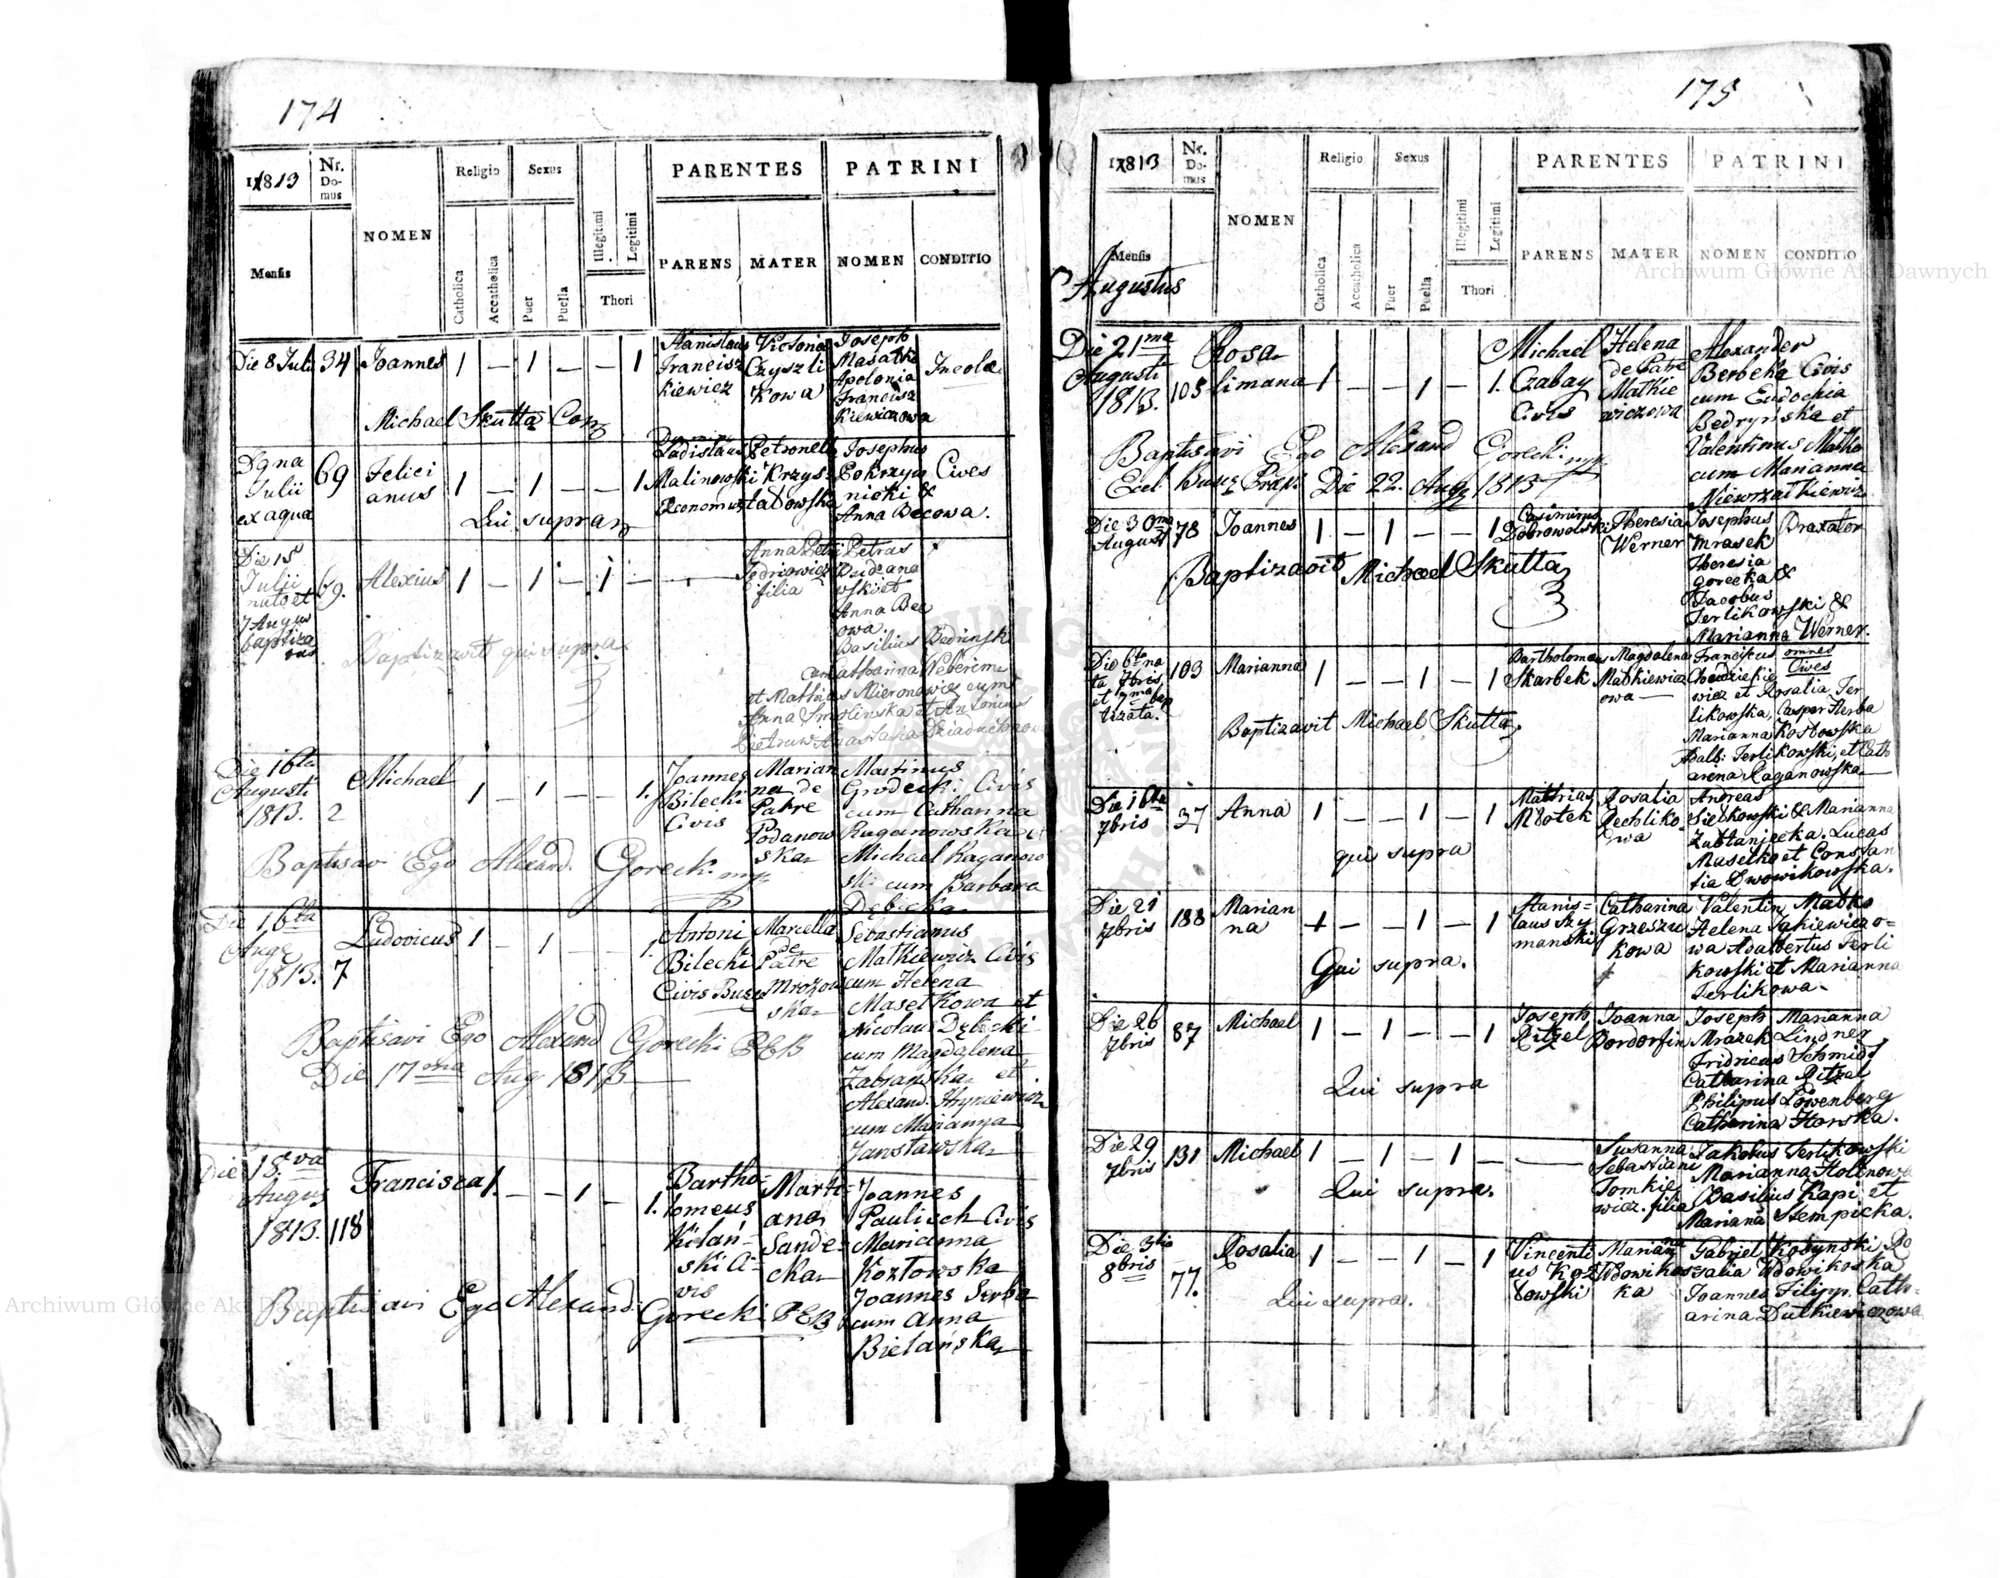 174
1813
Nr. Domus
NOMEN
Religio
Sexus
PARENTES
PATRINI
Mensis
Catholica
Accatholica
Puer
Puella
Illegitimi
Legitimi
Thori
PARENS
MATER
NOMEN
CONDITIO
Die 8 Julii 34 Joannes 1 — 1 — — 1
Stanislaus
Francisz
kiewicz
Victoria
Czyszli
kowa
Joseph
Masatko
Apolonia
Francisz
kiewiczowa
Incolae
Michael Skutta
69 Felici
anus 1 — 1 — — 1
Julii
ex aqua
Ladislaus
Malinowski
Œconomus
Petronella
Krzys-
tatowska
Josephus
Pokrzyw
nicki &
Anna Becowa.
Cives
Qui supra
Die 15
Julii
natus et
7 Augus
baptiza
tus
69. Alexius 1 — 1 — 1 — —
Anna Petri
Jedriowicz
filia
Petrus
Anna Bec
owa.
Basilius Bedrinsk
cum Catharina
et Mathias Hieronowicz cum
Anna Smolinska et Antonius
Baptizavit qui supra
Die 16ta
Augusti
1813. 2 Michael 1 — 1 — — 1.
Joannes
Bilecki
Civis
Marian
na de
Patre
Podanow
ska
Martinus
Grodecki Civis
cum Catharina
Raganowska et
Michael Raganow
ski cum Barbara
Dębicka
Baptisavi Ego Alexand. Gorecki mp
Die 16ta
Aug
1813. 7 Ludovicus 1 — 1 — — 1.
Antoni
Bilecki
Civis Busz
Marcella
de
Patre
Mrozow
ska
Sebastianus
Matkiewicz Civis
cum Helena
Maselkowa et
Nicolaus Dębicki
cum Magdalena
Zabramska et
Alexan. Hryniewicz
cum Marianna
Janstawska
Baptisavi Ego Alexand Gorecki PEB
Die 17ma Aug 1813
Die 18va
Augus
1813. 118 Francisca 1. — — 1 — 1.
Bartho-
lomeus
Kilań-
ski Ci-
vis
Marti-
ana
Sande-
cka
Joannes
Paulisch Civis
Marianna
Kozłowska
Joannes Serba
cum Anna
Bielańska
Baptisavi Ego Alexand: Gorecki PEB
175
1813
Nr. Domus
NOMEN
Religio
Sexus
PARENTES
PATRINI
Mensis
Augustus
Catholica
Accatholica
Puer
Puella
Illegitimi
Legitimi
Thori
PARENS
MATER
NOMEN
CONDITIO
Die 21ma
Augusti
1813. 105 Rosa
limana 1 — — 1 — 1.
Michael
Czabay
Civis
Helena
de Patre
Matkie
wiczowa
Alexander
Berbeka Civis
cum Eudochia
Bedrynska et
Valentinus Matko
cum Marianna
Niewrzałkiewicz
Baptisavi Ego Alexand Gorecki mp
Die 22. Aug 1813
Die 30ma
Augusti 78 Joannes 1 — 1 — — 1
Casimirus
Dobrowolski
Theresia
Werner
Josephus
Mrasek
Theresia
Gorecka &
Jacobus
Terlikowski &
Marianna Werner.
Braxator
Baptizavit Michael Skutta
Die 6ta
103 Marianna 1 — — 1 — 1
Bartholomeus
Skarbek
Magdalena
Matkiewicz
owa —
Franciscus
wicz et Rosalia Ter
likowska, Casper Herba
Marianna Kostowska
Balt: Terlikowski, et Cath
arena Raganowska
omnes
Cives
Baptizavit Michael Skutta
Die 16ta
7bris 37 Anna 1 — — 1 — 1
Mathias
Młotek
Rosalia
Pechliko-
wa
Andreas
Sietkowski & Marianna
Zabłanjecka. Lucas
Maselko et Constan
tia Lwowikowska.
qui supra
Die 21
7bris 188 Marian
na 1 — — 1 — 1
Stanis-
laus Szy
manski
Catharina
Grzeszu
kowa
Valentin Matko
Helena Jakiewiczo-
wa Adalbertus Terli
kowski et Marianna
Terlikowa.
Qui supra.
Die 26
7bris 87 Michael 1 — 1 — — 1
Joseph
Ritzel
Joanna
Bordorfin
Joseph Marianna
Mrazek Lindner
Fridricus Schmidt
Catharina Ritzel
Philipus Löwenberg
Catharina Horska.
Qui supra
Die 29
7bris 131 Michael 1 — 1 — 1 —
Susanna
Sebastiani
Tomkie
wicz. filia
Jakobus Terlikowski
Marianna Holinowa
Basilius Kapi et
Marianna Stempicka.
Qui supra.
Die 3tio
8bris 77. Rosalia 1 — — 1 — 1
Vincenti
us Koz
łowski
Marianna
Wdowikow-
ka
Gabriel Kobynski Ro
salia Wdowikoska
Joannes Filipp. Cath-
arina Dutkiewiczowa
Qui supra.
Archiwum Główne Akt Dawnych
Archiwum Główne Akt Dawnych